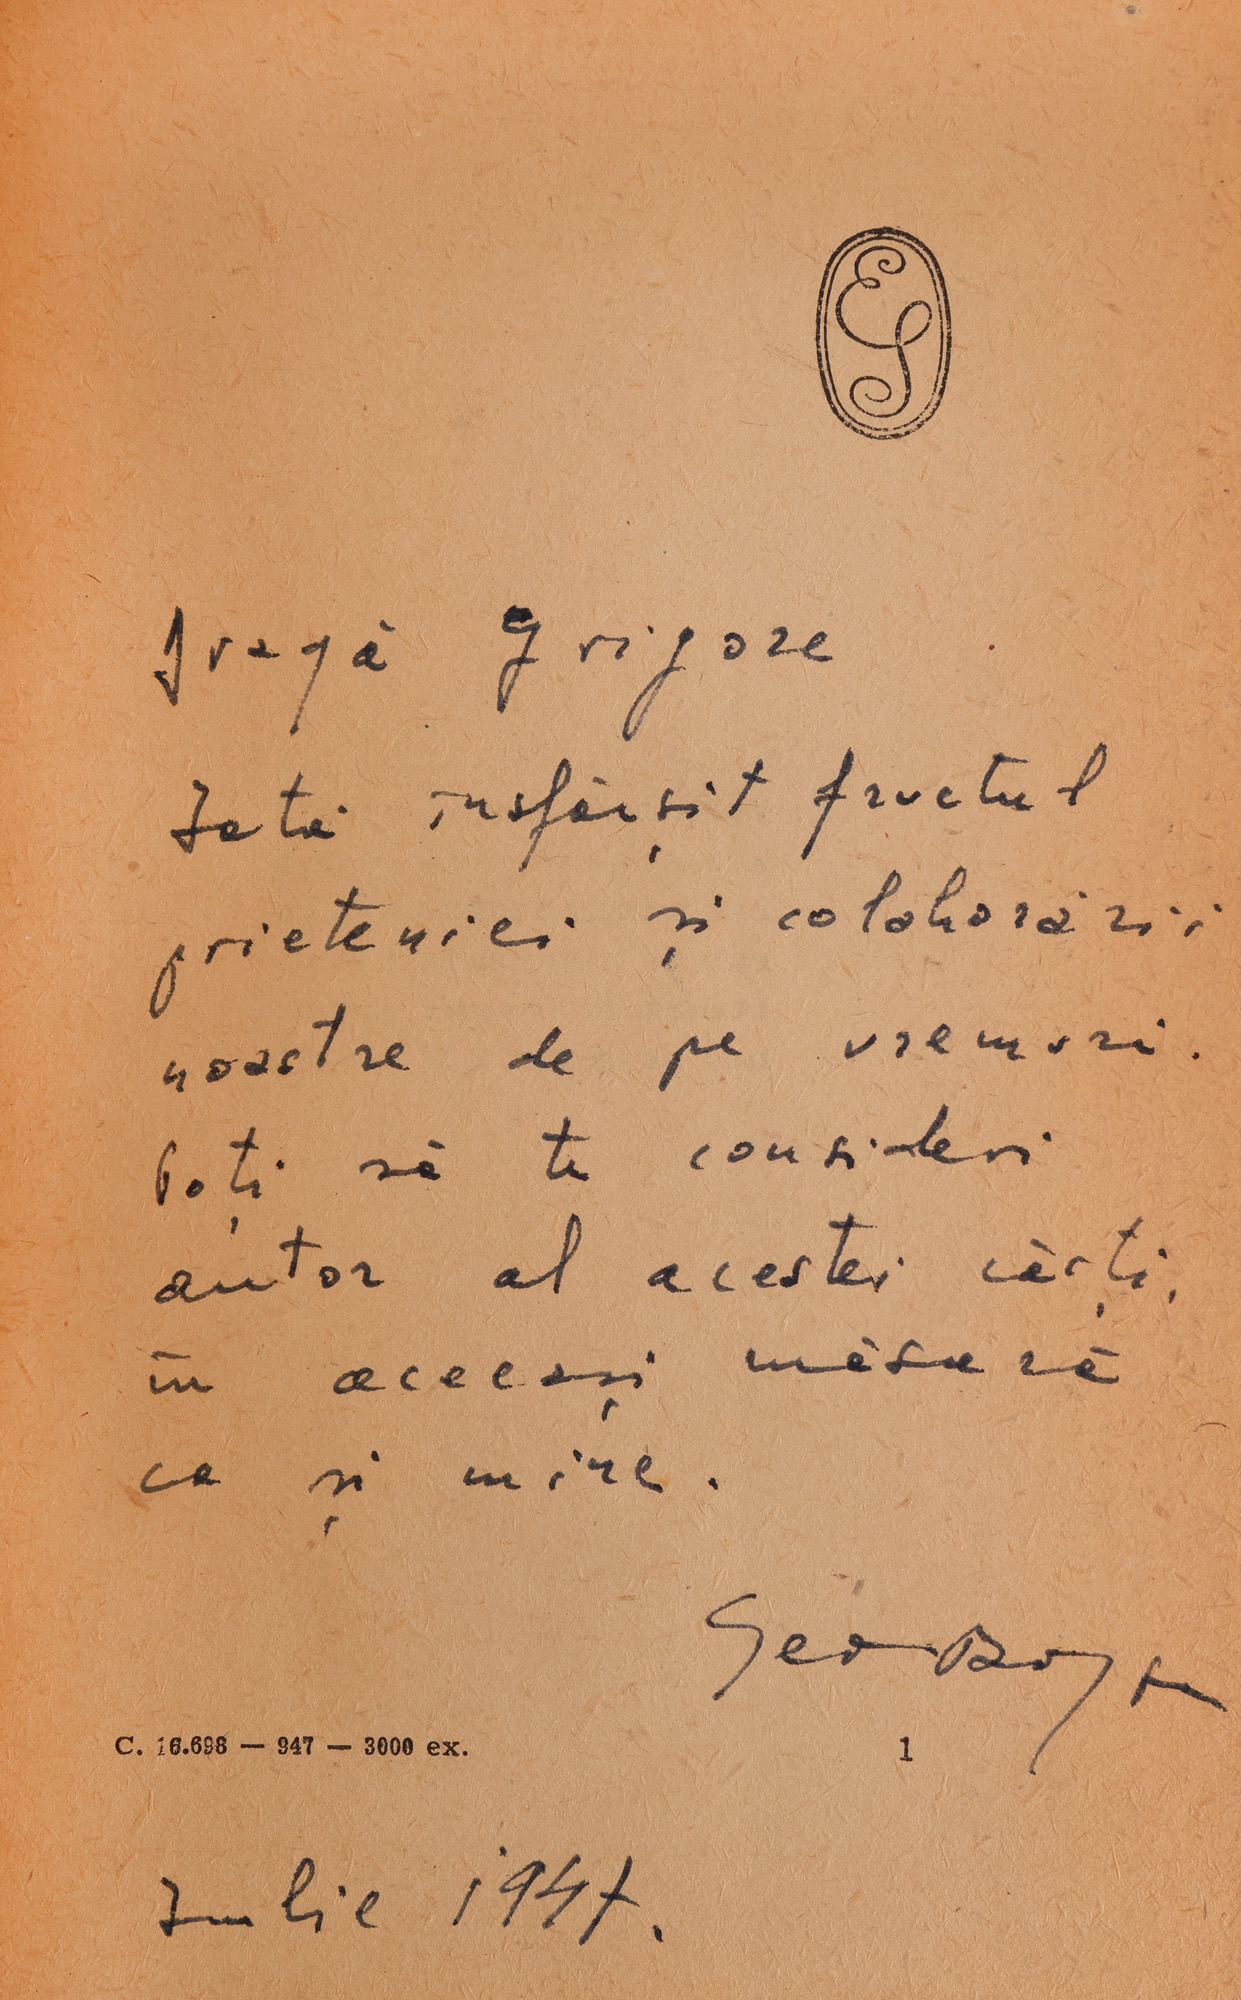 ES
Dragă Grigore
Iată însfârșit fructul
prieteniei și colaborării
noastre de pe vremuri.
Poți să te consideri
autor al acestei cărți,
în aceeași măsură
ca și mine.
Geo Bogza
C. 16.698 — 947 — 3000 ex.
1
Iulie 1947.